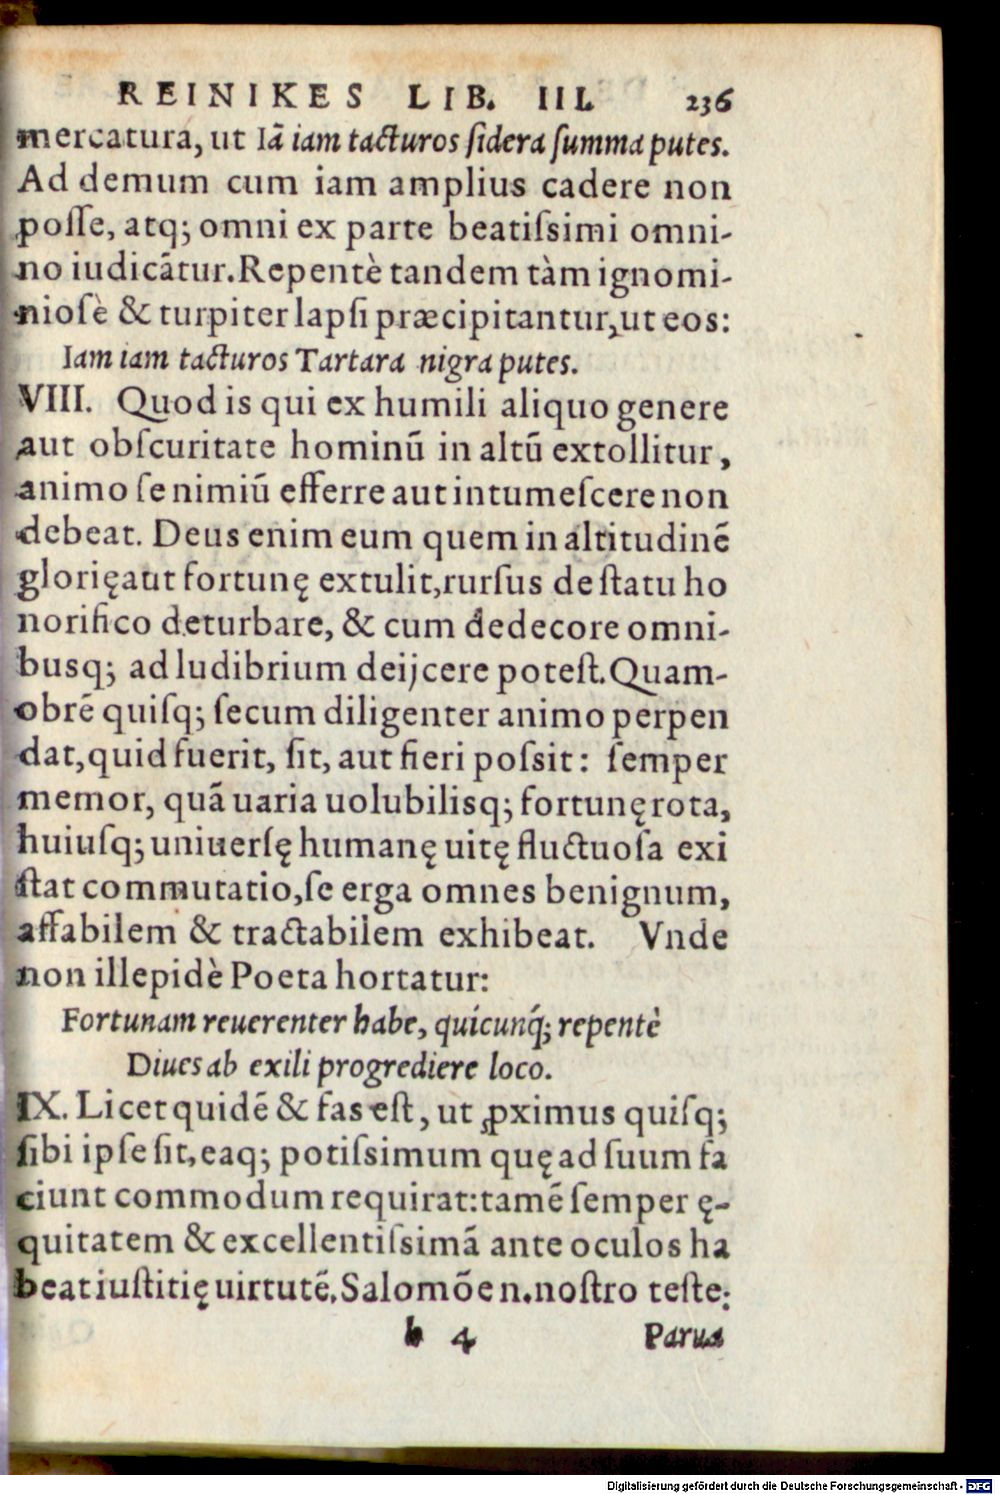 REINIKES LIB. III. 236
mercatura, ut Iã iam tacturos ſidera ſumma putes.
Ad demum cum iam amplius cadere non
poſſe, atq; omni ex parte beatiſsimi omni-
no iudicãtur. Repentè tandem tàm ignomi-
nioſè & turpiter lapſi præcipitantur, ut eos:
Iam iam tacturos Tartara nigra putes.
VIII. Quod is qui ex humili aliquo genere
aut obſcuritate hominũ in altũ extollitur,
animo ſe nimiũ efferre aut intumeſcere non
debeat. Deus enim eum quem in altitudinẽ
glorię aut fortunę extulit, rurſus de ſtatu ho
norifico deturbare, & cum dedecore omni-
busq; ad ludibrium deijcere poteſt. Quam-
obrẽ quiſq; ſecum diligenter animo perpen
dat, quid fuerit, ſit, aut fieri poſsit: ſemper
memor, quã uaria uolubilisq; fortunę rota,
huiuſq; uniuerſę humanę uitę fluctuoſa exi
ſtat commutatio, ſe erga omnes benignum,
affabilem & tractabilem exhibeat. Vnde
non illepidè Poeta hortatur:
Fortunam reuerenter habe, quicunq́; repentè
Diues ab exili progrediere loco.
IX. Licet quidẽ & fas eſt, ut ꝓximus quiſq;
ſibi ipſe ſit, eaq; potiſsimum quę ad ſuum fa
ciunt commodum requirat: tamẽ ſemper ę-
quitatem & excellentiſsimã ante oculos ha
beat iuſtitię uirtutẽ. Salomõe n. noſtro teſte:
h 4 Parua
Digitalisierung gefördert durch die Deutsche Forschungsgemeinschaft - DFG